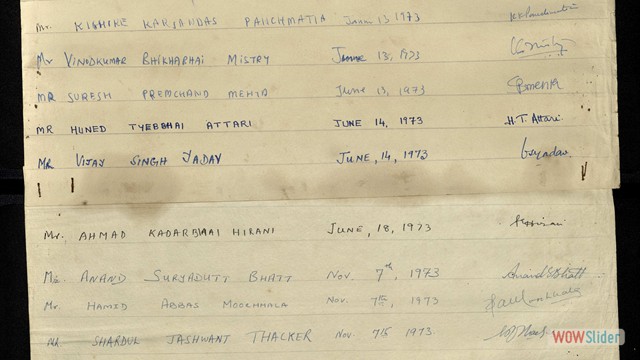 Mr. KISHORE KARSANDAS PANCHMATIA June 13 1973
Mr VINODKUMAR BHIKHABHAI MISTRY June 13, 1973
MR SURESH PREMCHAND MEHTA June 13, 1973
MR HUNED TYEBBHAI ATTARI JUNE 14, 1973 H.T Attari
MR VIJAY SINGH YADAV JUNE, 14, 1973 Vsyadav
Mr. AHMAD KADARBHAI HIRANI JUNE, 18, 1973
Mr. ANAND SURYADUTT BHATT Nov. 7th, 1973 Anand S Bhatt
Mr. HAMID ABBAS MOOCHHALA Nov. 7th, 1973
Mr. SHARDUL JASHWANT THACKER Nov 7th 1973
WOWSlider